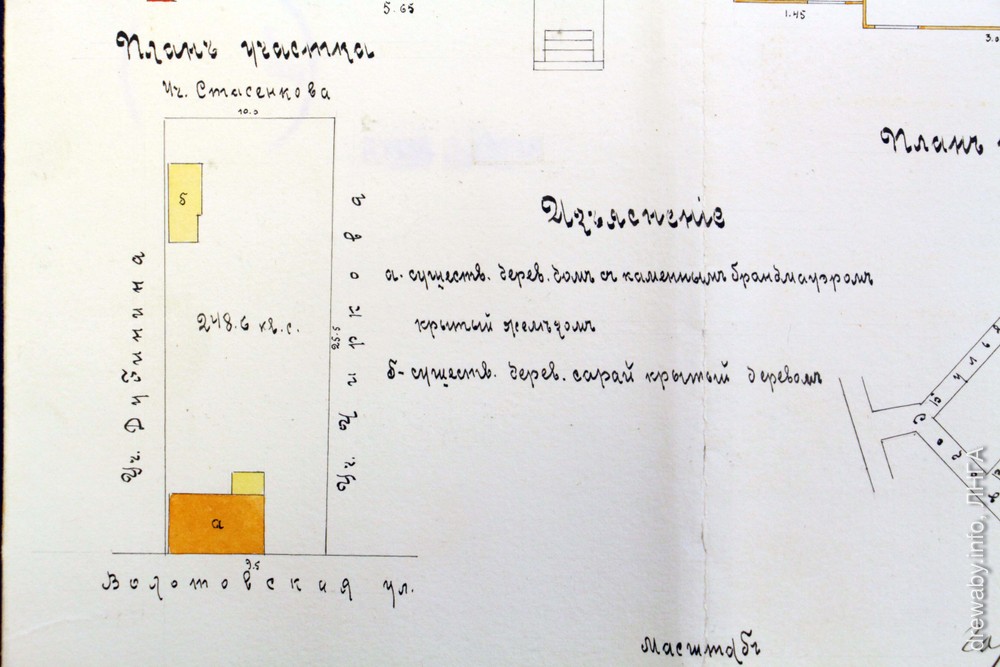 5.65
1.45
3.0
Планъ участка
Уч. Стасенкова
10.0
Планъ
б
Изъясненіе
Уч. Рубинина
а. существ. дерев. домъ съ каменнымъ брандмауэромъ
крытый желѣзомъ
248.6 кв. с.
25.5
б- существ. дерев. сарай крытый деревомъ
а
9.5
Волотовская ул.
Масштабъ
drewaby.info, ЛНГА